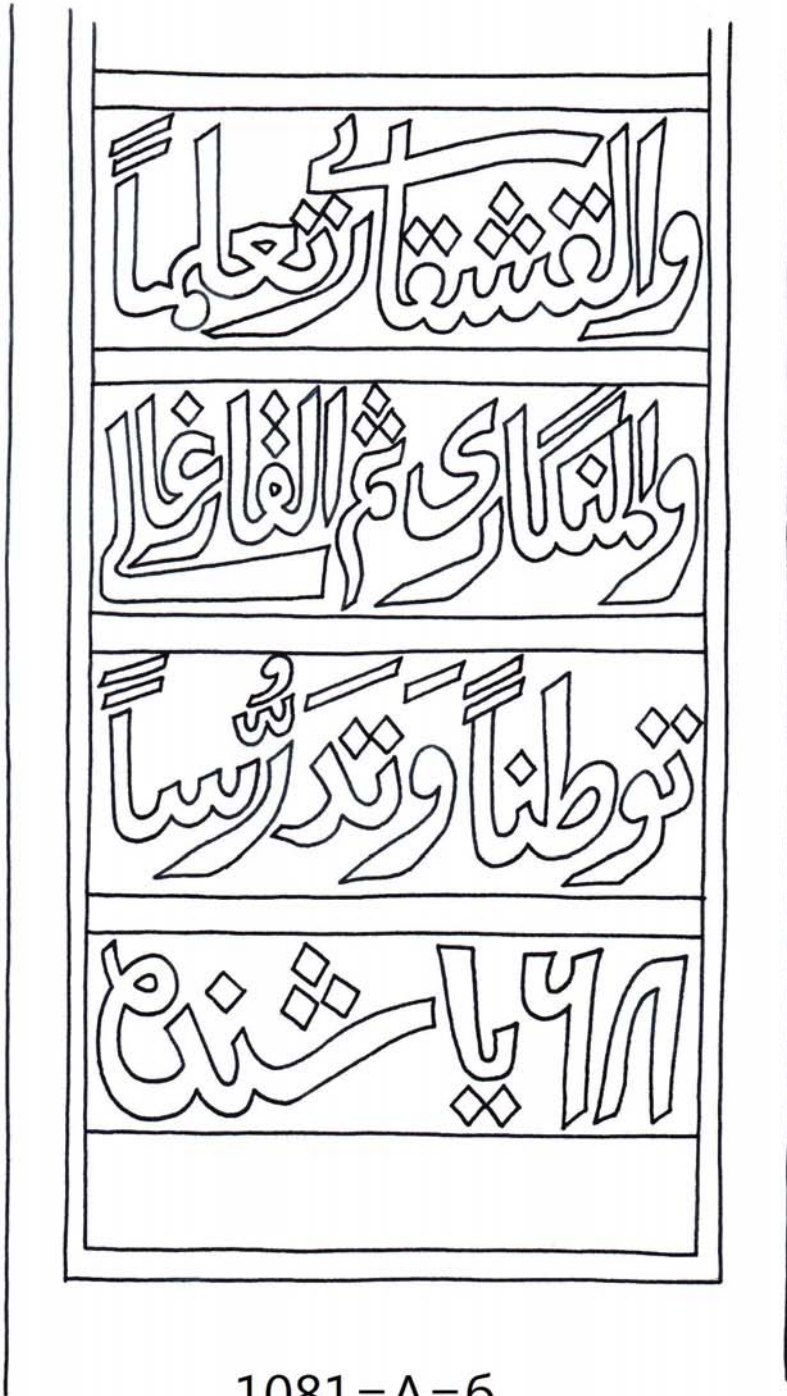 والقشقارے تعلماً
والمنگارى ثم القارغالے
توطناً وَتدَرُّساً
٦٨ ياشنده
1081=А=6